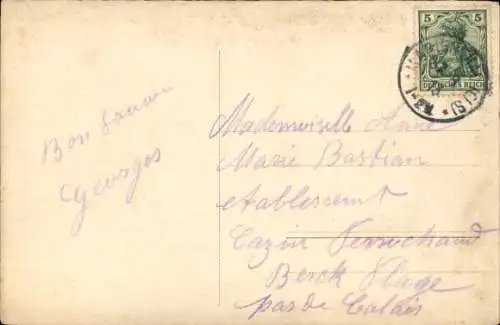 Bon Souvenir
Georges
5 5
DEUTSCHES REICH
Mademoiselle Anne
Marie Bastian
etablissement
Cazin Perrochaud
Berck Plage
pas de Calais